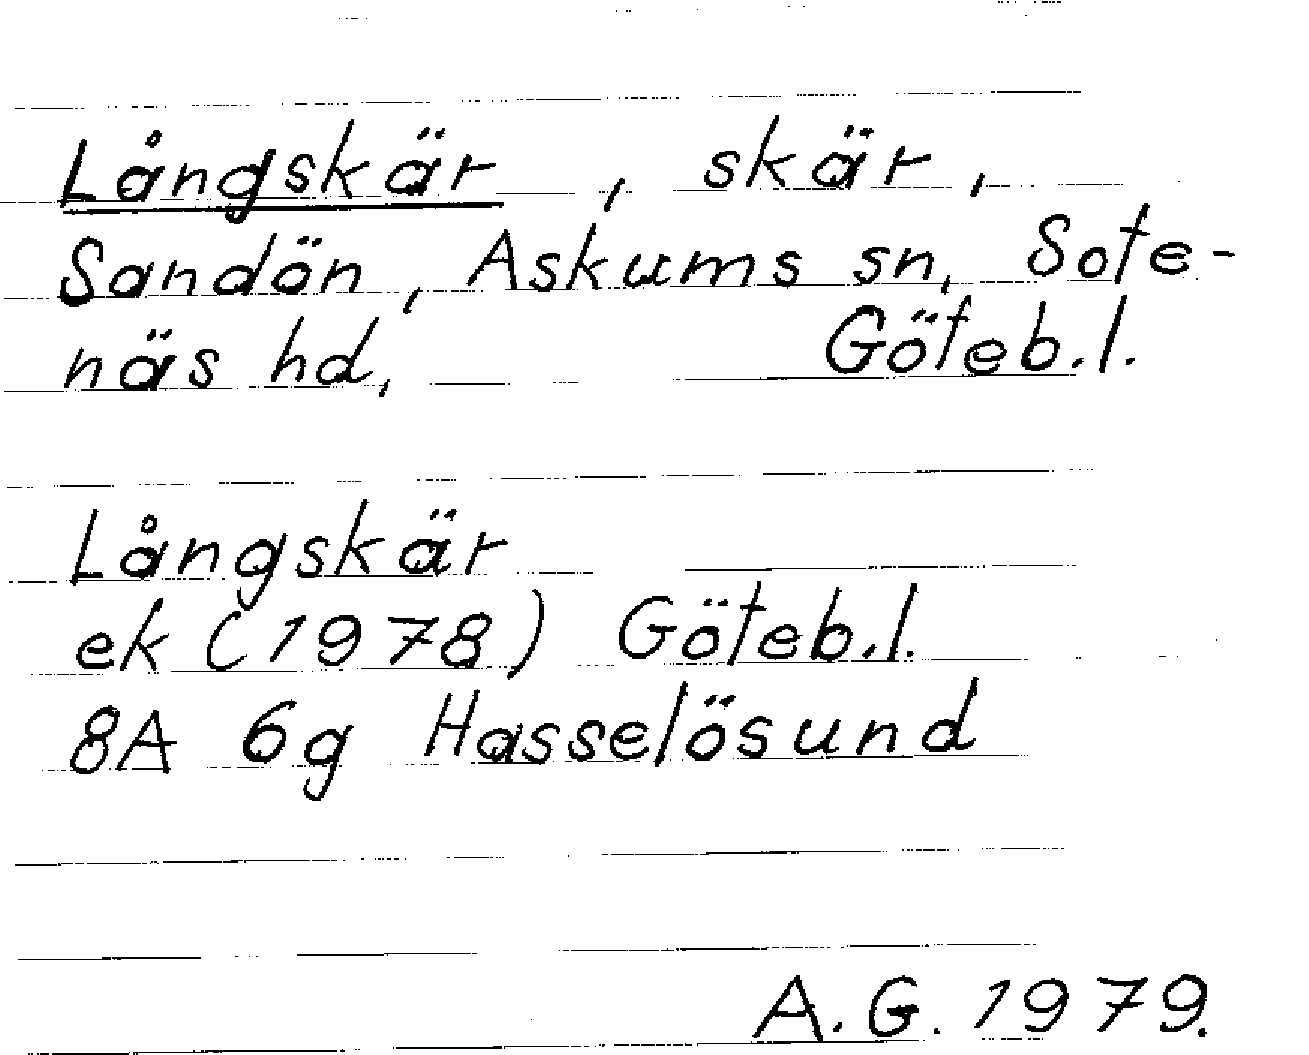 Långskär, skär,
Sandön, Askums sn, Sote-
näs hd, Göteb.l.
Långskär
ek (1978) Göteb.l.
8A 6g Hasselösund
A.G. 1979.